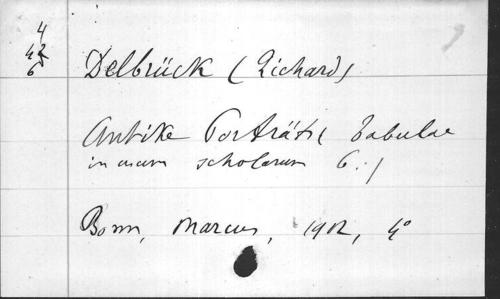 4
42
6
Delbrück (Richard)
Antike Porträts (Tabulae
in usum scholarum 6.)
Bonn, Marcus, 1912, 4°